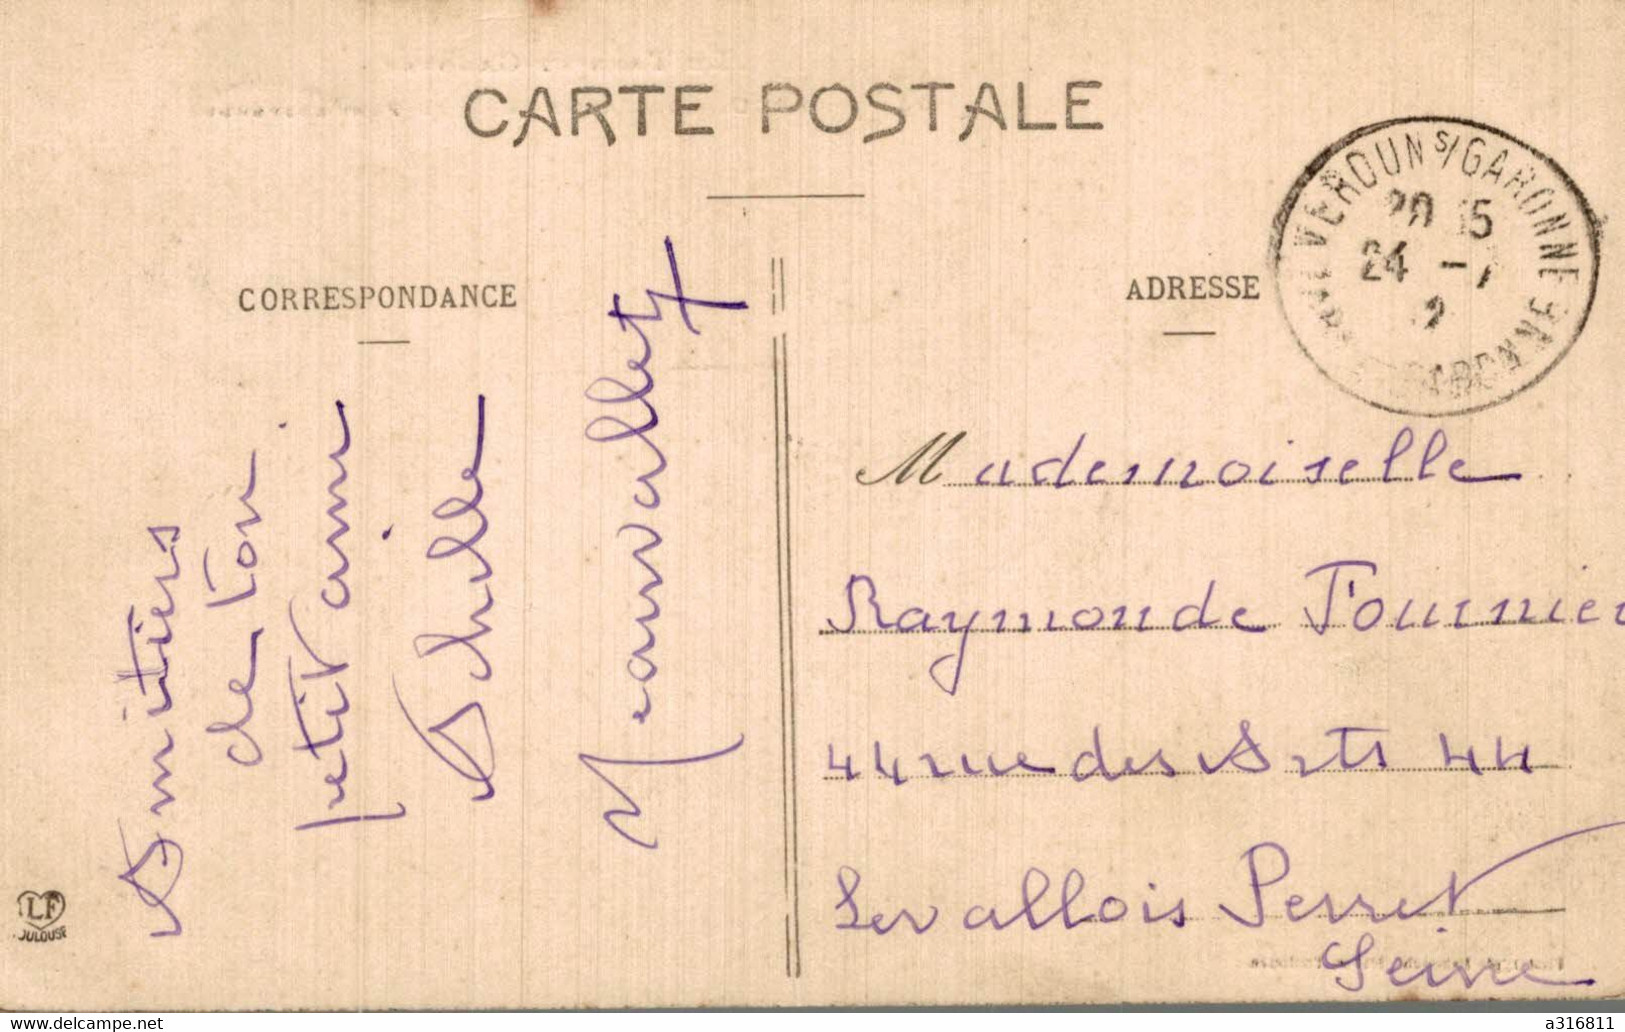 CARTE POSTALE
CORRESPONDANCE
ADRESSE
VERDUN S/GARONNE
GARONNE
24 -7
Amitiés
de ton
petit ami
Achille
Mademoiselle
Raymonde Fournier
44 rue des Arts 44
Levallois Perret
Seine
LF
TOULOUSE
www.delcampe.net
a316811